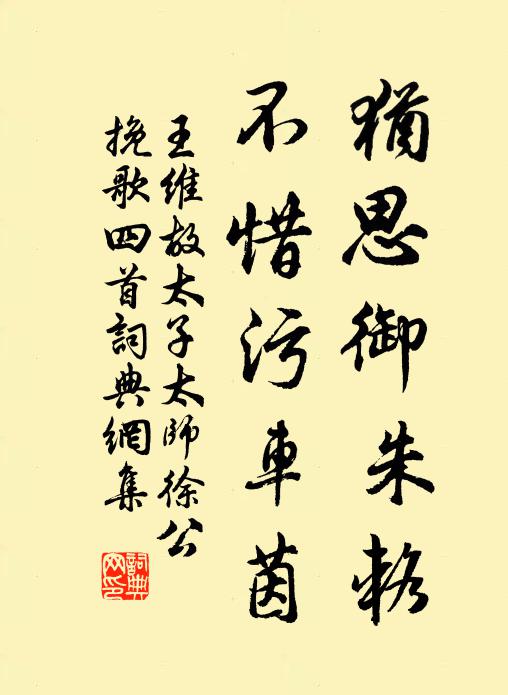 猶思御朱輅
不惜污車茵
王維故太子太師徐公
挽歌四首詞典網集
詞典
网印